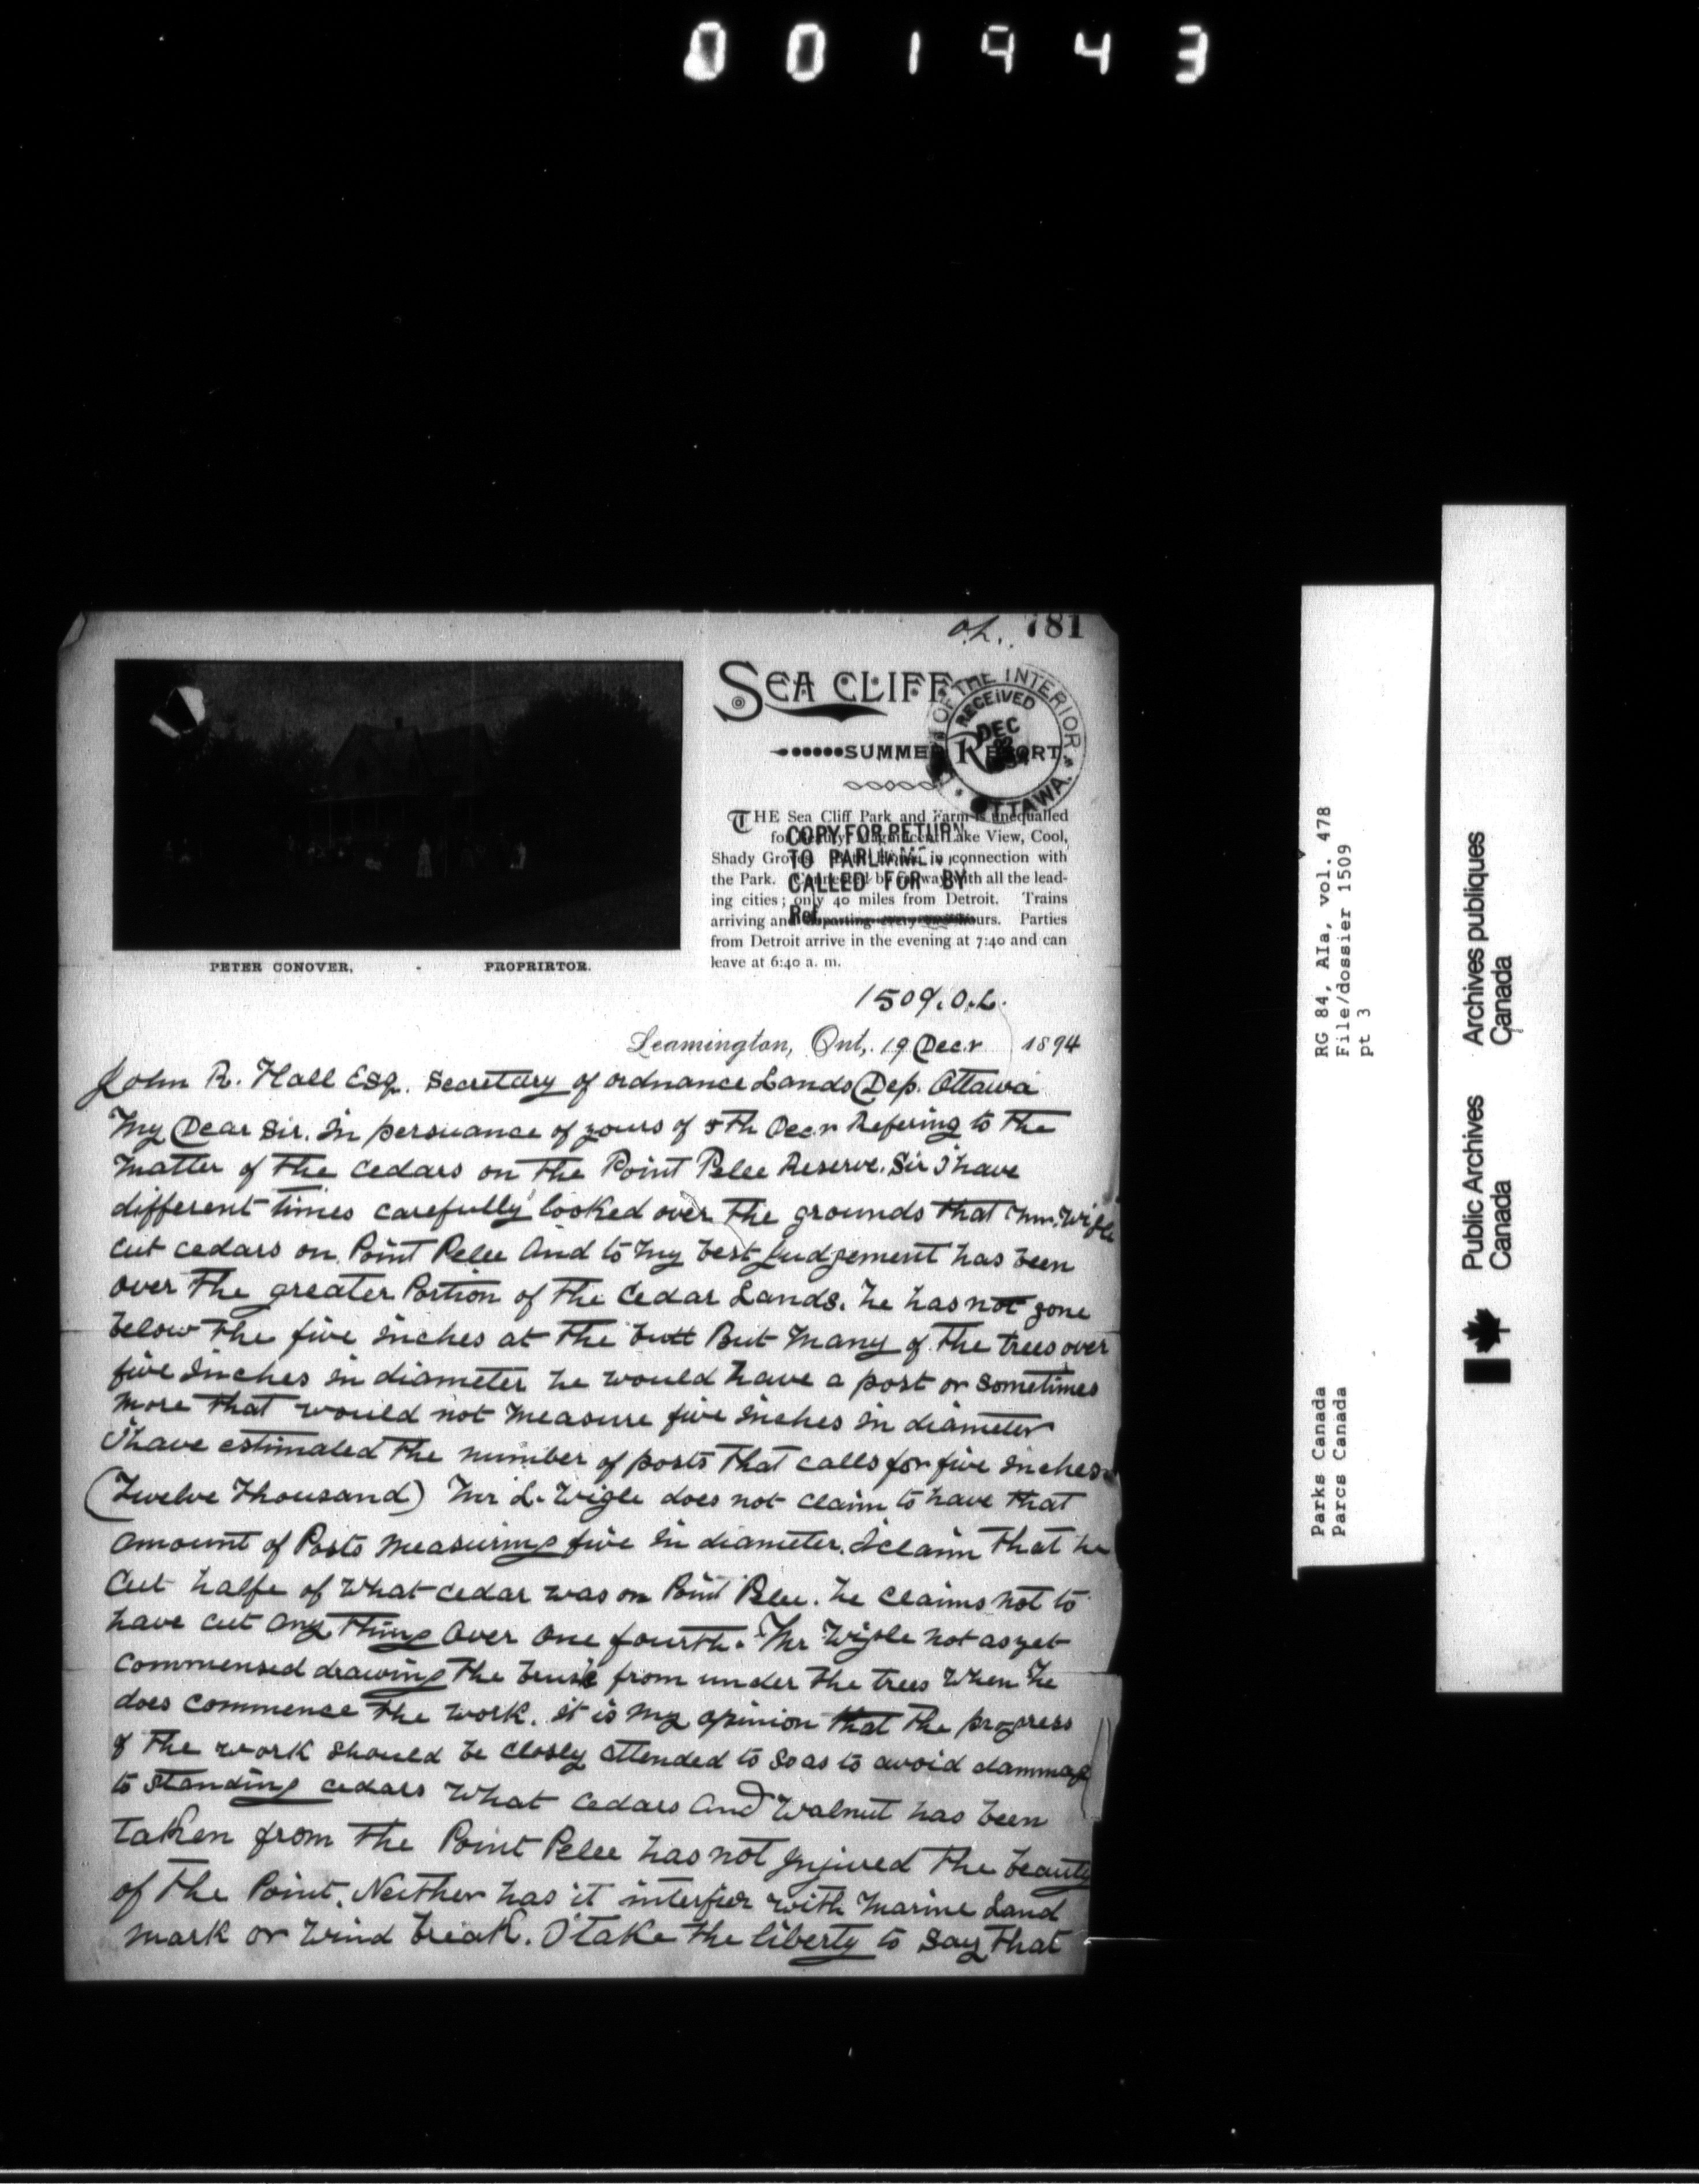 001943
O.L. 781
SEA CLIFF
SUMMER RESORT.
OF THE INTERIOR
RECEIVED
DEC
OTTAWA.
THE Sea Cliff Park and Farm is unequalled
for Beauty, Magnificent Lake View, Cool,
Shady Groves. in connection with
the Park. Connected by railway with all the lead-
ing cities; only 40 miles from Detroit. Trains
arriving and departing every hours. Parties
from Detroit arrive in the evening at 7:40 and can
leave at 6:40 a. m.
COPY FOR RETURN
TO PARLIAME
CALLED FOR BY
Ref.
PETER CONOVER, - PROPRIETOR.
1509.O.L.
Leamington, Ont., 19 Decr 1894
John R. Hall Esq. Secretary of ordnance Lands Dep. Ottawa
My Dear Sir. In persuance of yours of 5th Decr Refering to the
matter of the cedars on the Point Pelee Reserve. Sir I have
different times carefully looked over the grounds that Mr. Wigle
cut cedars on Point Pelee And to my best Judgement has been
over the greater Portion of the Cedar Lands. he has not gone
below the five inches at the butt But many of the trees over
five inches in diameter he would have a post or sometimes
more that would not measure five inches in diameter
I have estimated the number of posts that calls for five inches
(Twelve Thousand) Mr L. Wigle does not claim to have that
amount of Posts measuring five in diameter. I claim that he
cut halfe of what cedar was on Point Pelee. he claims not to
have cut any thing over one fourth. Mr Wigle not as yet
commensed drawing the brush from under the trees when he
does commence the work. it is my opinion that the progress
of the work should be closly attended to so as to avoid dammage
to standing cedars What cedars and walnut has been
taken from the Point Pelee has not Injured the beauty
of the Point. Neither has it interfier with marine Land
mark or wind break. I take the liberty to say that
RG 84, A1a, vol. 478
File/dossier 1509
pt 3
Parks Canada
Parcs Canada
Public Archives
Canada
Archives publiques
Canada